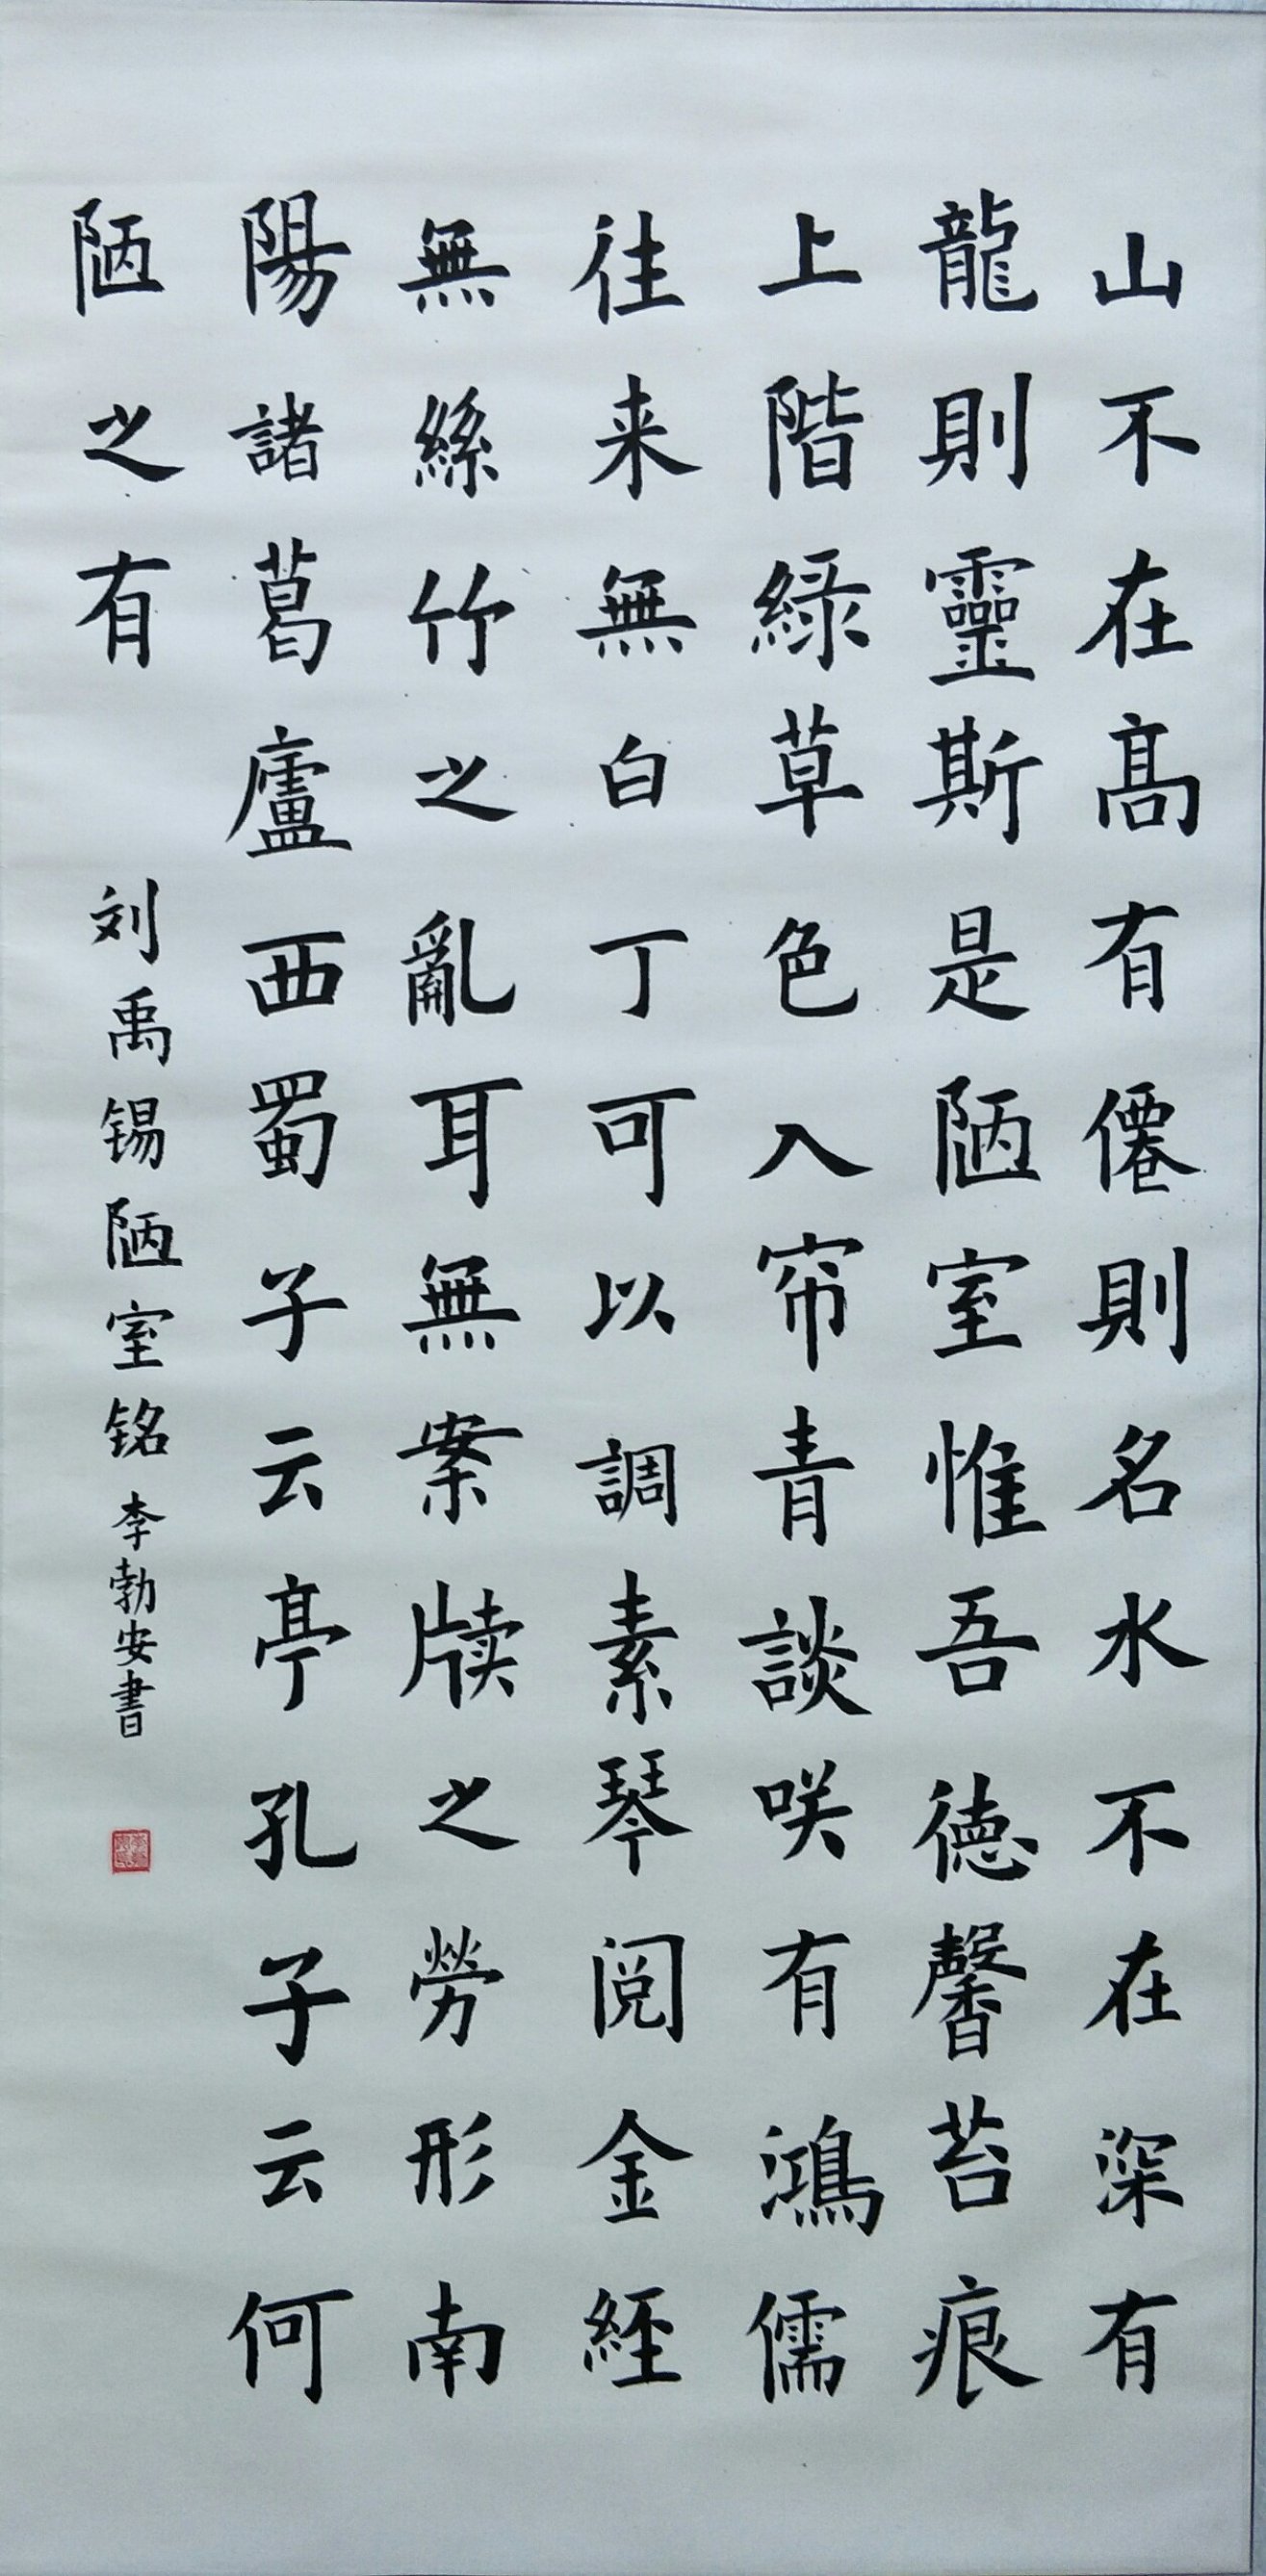 山不在高有僊則名水不在深有
龍則靈斯是陋室惟吾德馨苔痕
上階綠草色入帘青談咲有鴻儒
往来無白丁可以調素琴閲金經
無絲竹之亂耳無案牍之勞形南
陽諸葛廬西蜀子云亭孔子云何
陋之有
刘禹锡陋室铭李勃安書